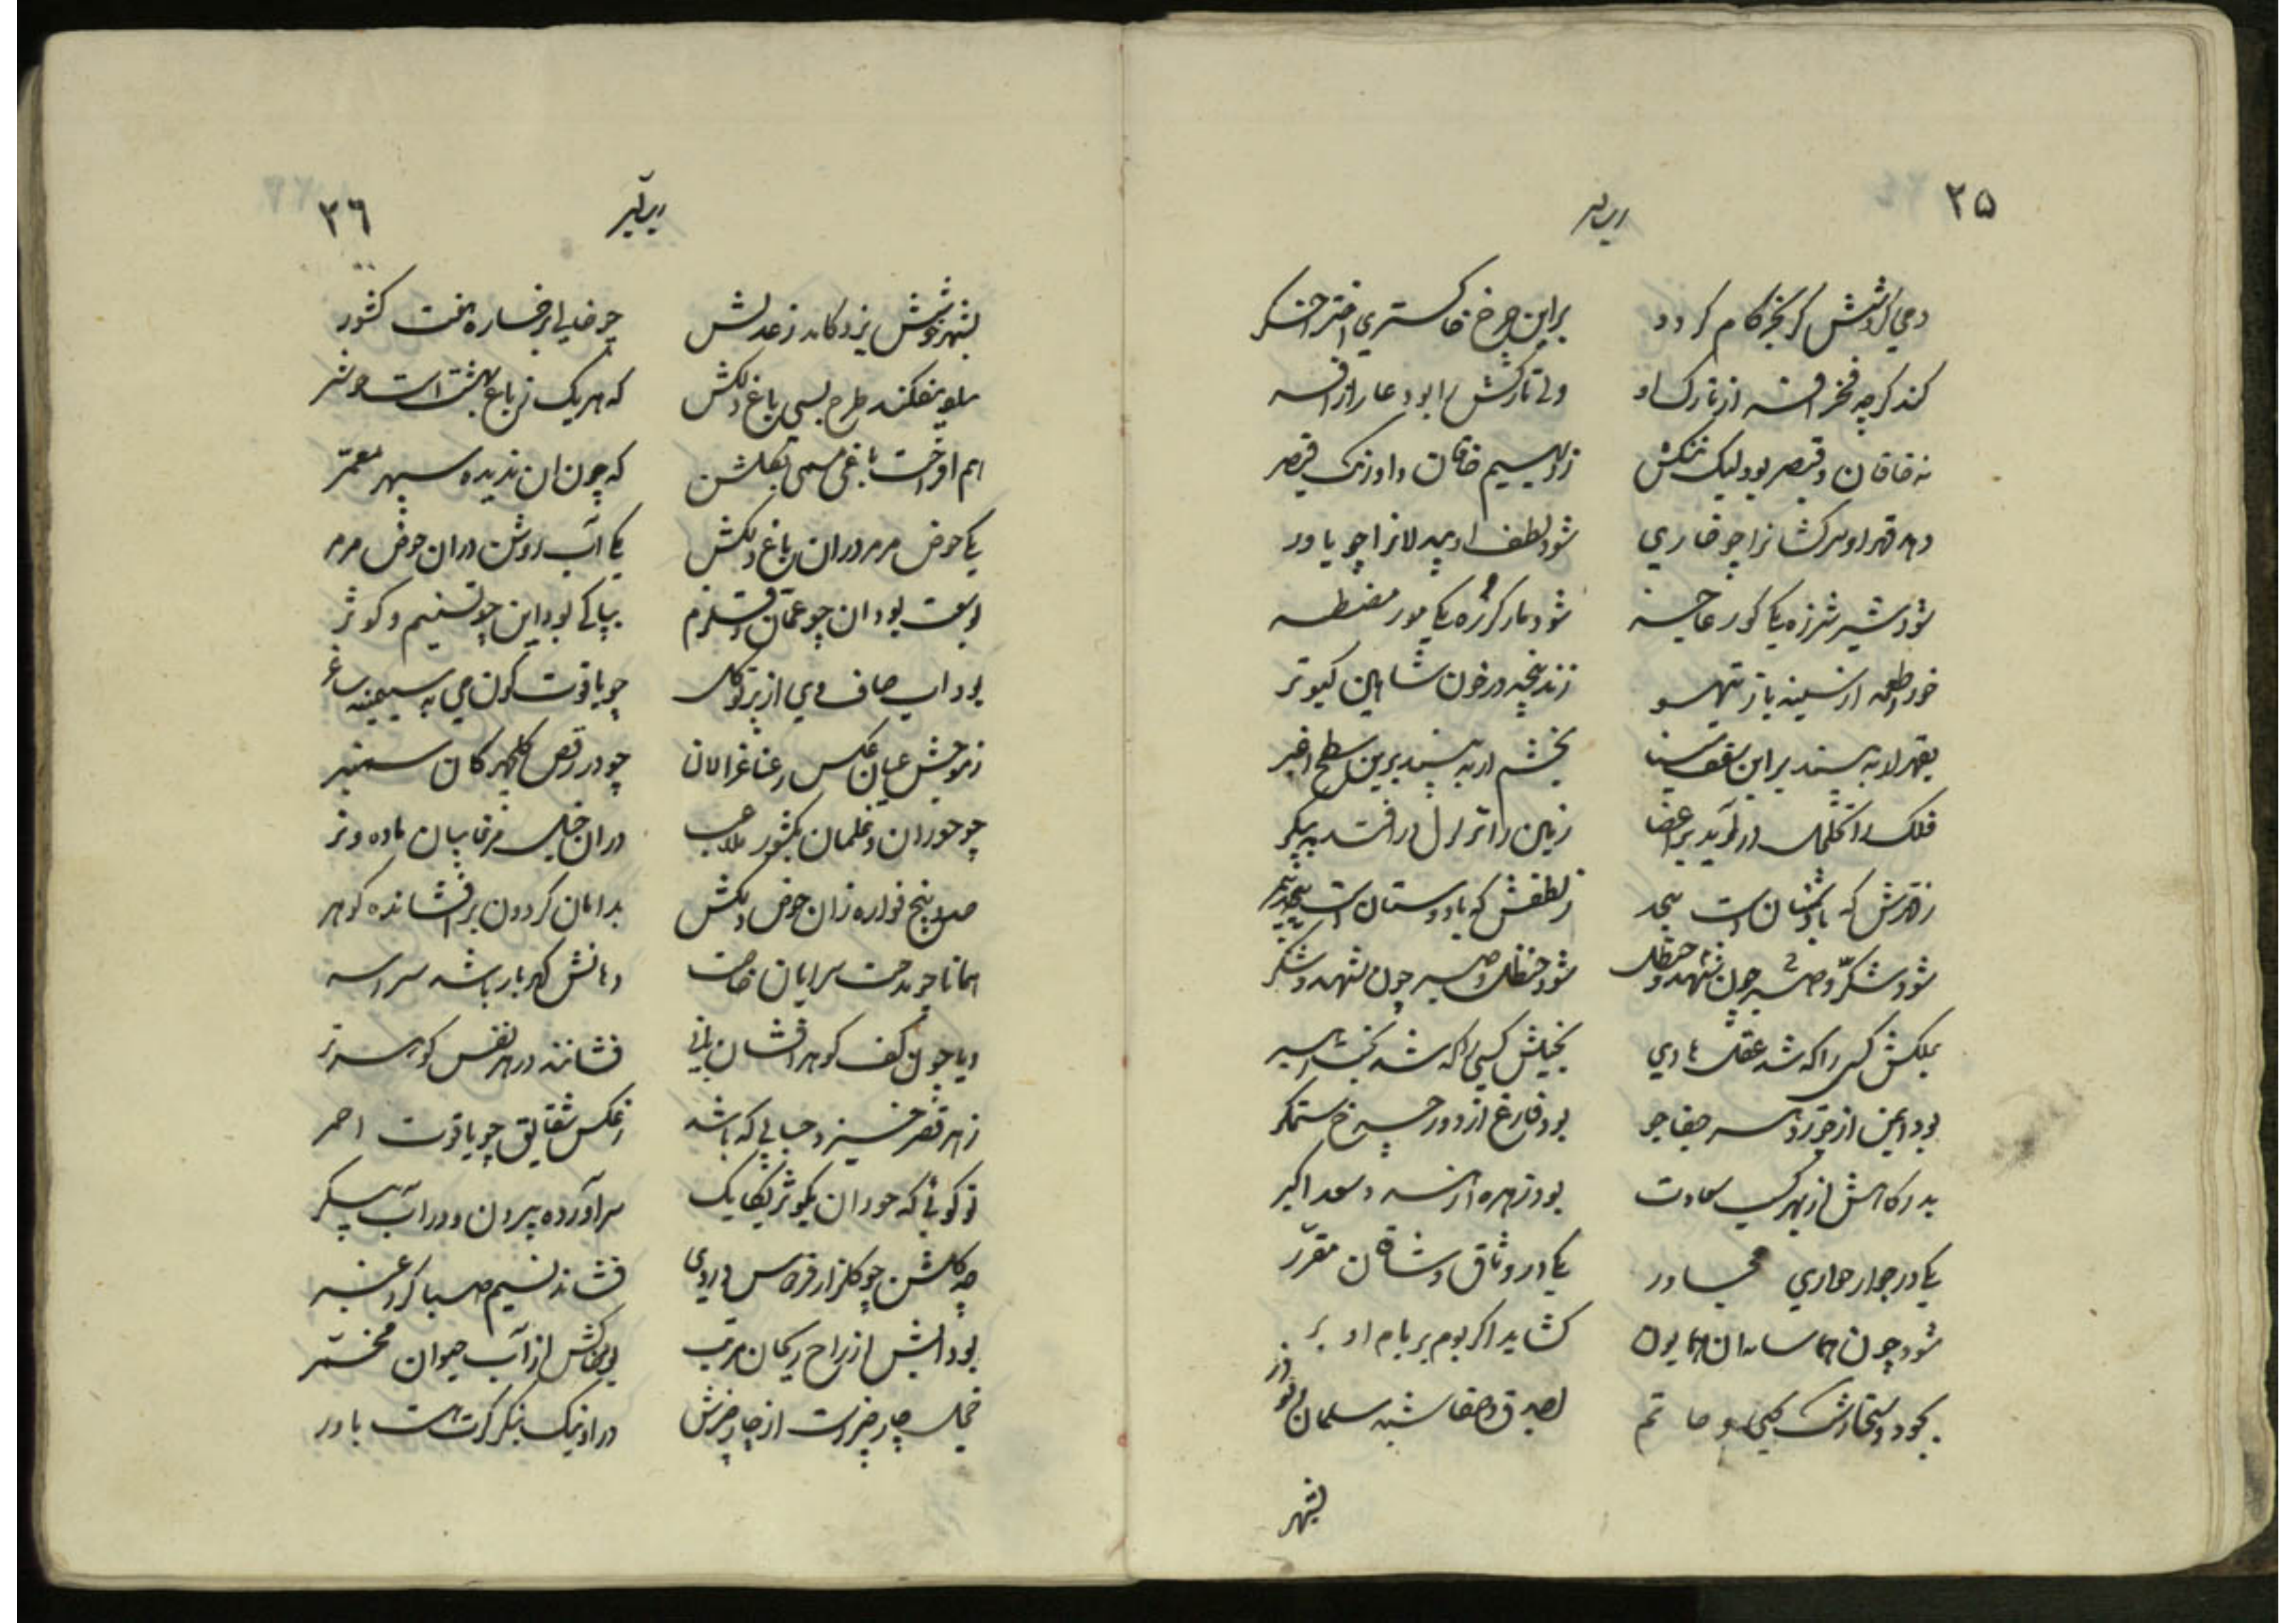 ۲۵
دمی گردشش گر بجز کام گردد
براین چرخ خاکستری اختر اخگر
کند گرچه فخر افسر از تارک او
ولی تارکش را بود عار از افسر
نه خاقان و قیصر بود لیک ننگش
ز دیهیم خاقان و اورنگ قیصر
دهد قهر او سرکشانرا چو خواری
شود لطف او بیدلانرا چو یاور
شود شیر شرزه یکی گور عاجز
شود مار گرزه یکی مور مضطر
خورد طعمه از سینه باز تیهو
زند پنجه در خون شاهین کبوتر
بقهر ار به بیند براین سقف مینا
بخشم ار به بیند برین سطح اغبر
فلک را تخلخل درآید بر اعضا
زمین را تزلزل درافتد به پیکر
ز قهرش که با دشمنان است بیحد
ز لطفش که با دوستان است بیمر
شود شکر و صبر چون شهد و حنظل
شود حنظل و صبر چون شهد و شکر
بملکش کسی را که شد عقل هادی
بخیلش کسی را که شد بخت رهبر
بود ایمن از جور دهر جفاجو
بود فارغ از دور چرخ ستمگر
بدرگاهش از بهر کسب سعادت
بود زهره ازهر و سعد اکبر
یکی در جوار جواری مجاور
یکی در وثاق وشاقان مقرر
شود چون هما سایه‌اش همایون
گشاید اگر بوم بر بام او پر
بجود و سخاوت کی و حاتم
بصدق و صفا شبه سلمان و بوذر
بشهر
۲۶
بشهر خوش یزد کامد ز عدلش
چو خالی بر خساره هفت کشور
بیفکند طرح بسی باغ دلکش
که هریک ز باغ بهشت است خوشتر
هم افراخت باغی مسمی بگلشن
که چون ان ندیده سپهر معمر
یکی حوض مرمر دران باغ دلکش
یکی آب روشن دران حوض مرمر
بوسعت بود ان چو عمان و قلزم
بپاکی بود این چو تسنیم و کوثر
بود اب صاف وی از پرتو گل
چو یاقوت گون می به سیمینه ساغر
ز موجش عیان عکس رعنا غزالان
چو در رقص گلچهرگان سمنبر
چو حوران و غلمان بکوثر ملاعب
دران خیل مرغابیان ماده و نر
صد و پنج فواره زان حوض دلکش
بدامان گردون برافشانده گوهر
همانا چو مدحت سرایان خاقان
دهانش گهربار باشد سراسر
ویا چون کف گوهرافشان بانی
فشاننده در هر نفس گوهر تر
ز هر قطر خیزد حبابی که باشد
ز عکس شقایق چو یاقوت احمر
تو گوئی که حوران بکوثر یکایک
سرآورده بیرون و در آب پیکر
چه گلشن چو گلزار فردوس در وی
فشاند نسیم صبا گرد عنبر
بود آبش از راح ریحان مرتب
بود خاکش از آب حیوان مخمر
خجل چار چیز است از چار چیزش
در او نیک بنگر گرت هست باور